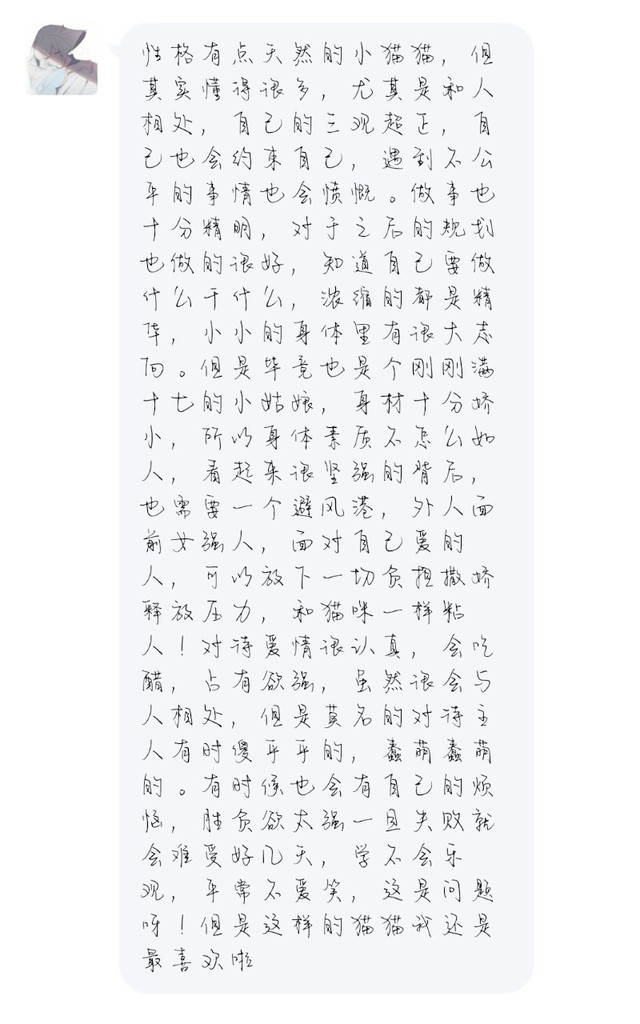 性格有点天然的小猫猫，但
其实懂得很多，尤其是和人
相处，自己的三观超正，自
己也会约束自己，遇到不公
平的事情也会愤慨。做事也
十分精明，对于之后的规划
也做的很好，知道自己要做
什么干什么，浓缩的都是精
华，小小的身体里有很大志
向。但是毕竟也是个刚刚满
十七的小姑娘，身材十分娇
小，所以身体素质不怎么如
人，看起来很坚强的背后，
也需要一个避风港，外人面
前女强人，面对自己爱的
人，可以放下一切负担撒娇
释放压力，和猫咪一样粘
人！对待爱情很认真，会吃
醋，占有欲强，虽然很会与
人相处，但是莫名的对待主
人有时傻乎乎的，蠢萌蠢萌
的。有时候也会有自己的烦
恼，胜负欲太强一旦失败就
会难受好几天，学不会乐
观，平常不爱笑，这是问题
呀！但是这样的猫猫我还是
最喜欢啦